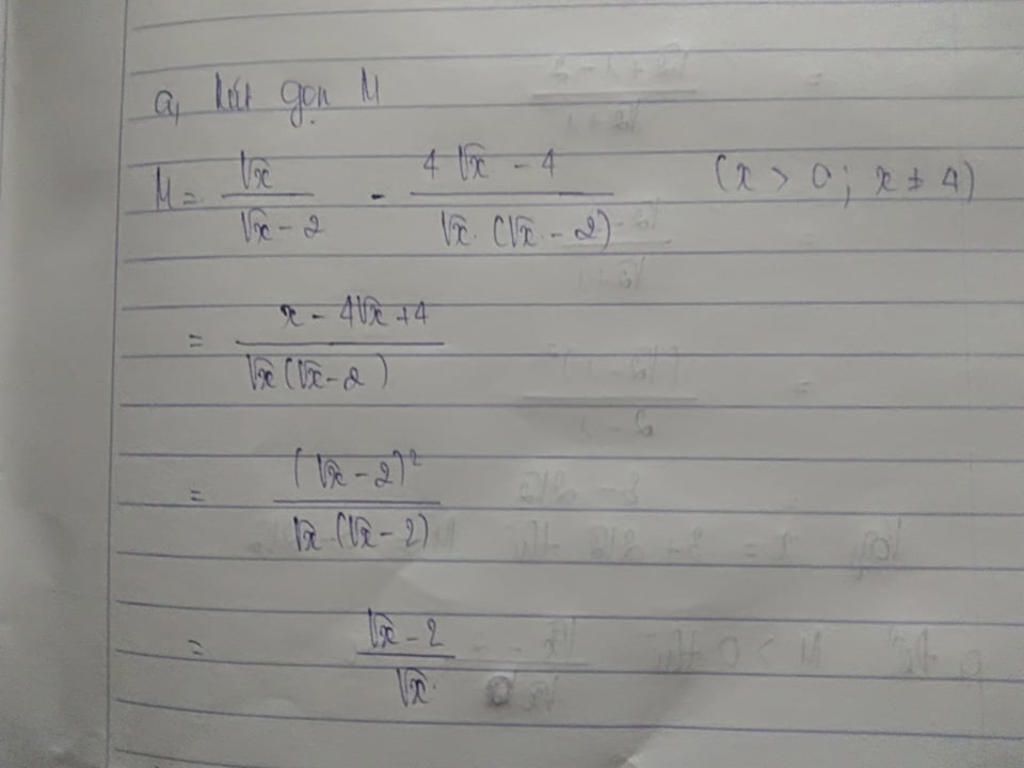 a, Rút gọn M
M = \frac{\sqrt{x}}{\sqrt{x} - 2} - \frac{4\sqrt{x} - 4}{\sqrt{x}.(\sqrt{x} - 2)} (x > 0; x ≠ 4)
= \frac{x - 4\sqrt{x} + 4}{\sqrt{x}(\sqrt{x} - 2)}
= \frac{(\sqrt{x} - 2)^2}{\sqrt{x}.(\sqrt{x} - 2)}
= \frac{\sqrt{x} - 2}{\sqrt{x}}